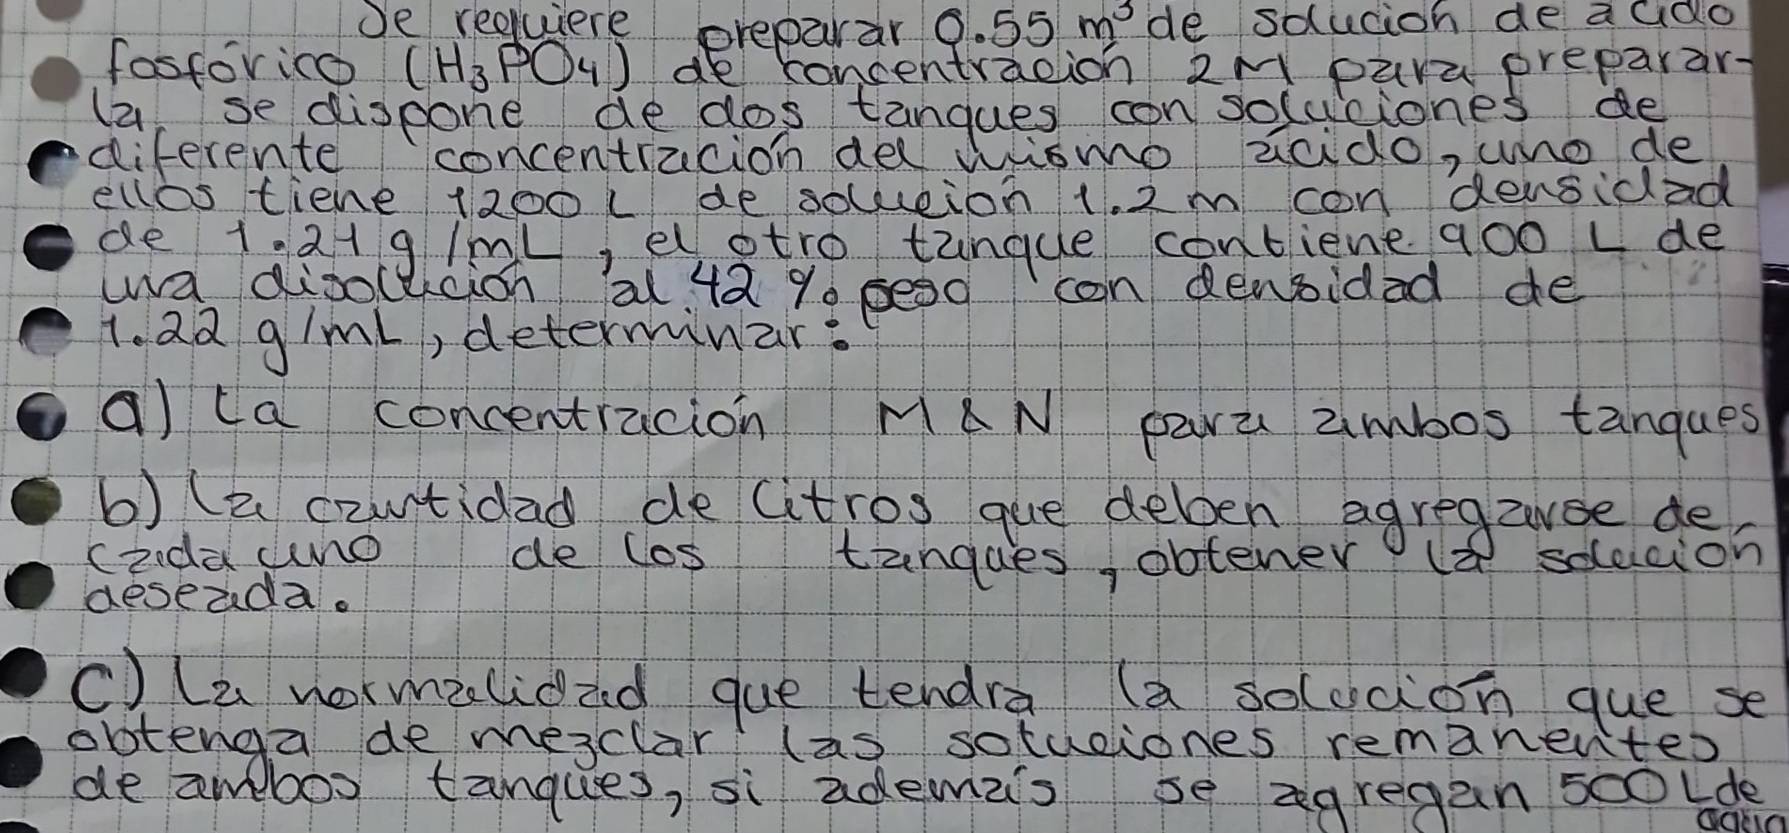 Se requiere preparar 0.55 m³ de solución de acido
fosfórico (H₃PO₄) de concentración 2M para preparar-
la se dispone de dos tanques con soluciones de
diferente concentración del mismo ácido, uno de
ellos tiene 1200 L de solución 1.2 m con densidad
de 1.21 g/mL, el otro tanque contiene 900 L de
una disolución al 42 % peso con densidad de
1.22 g/mL, determinar:
a) La concentración M & N para ambos tanques
b) La cantidad de litros que deben agregarse de
cada uno de los tanques, obtener la solución
deseada.
C) La normalidad que tendra la solución que se
obtenga de mezclar las soluciones remanentes
de ambos tanques, si además se agregan 500 L de
agua